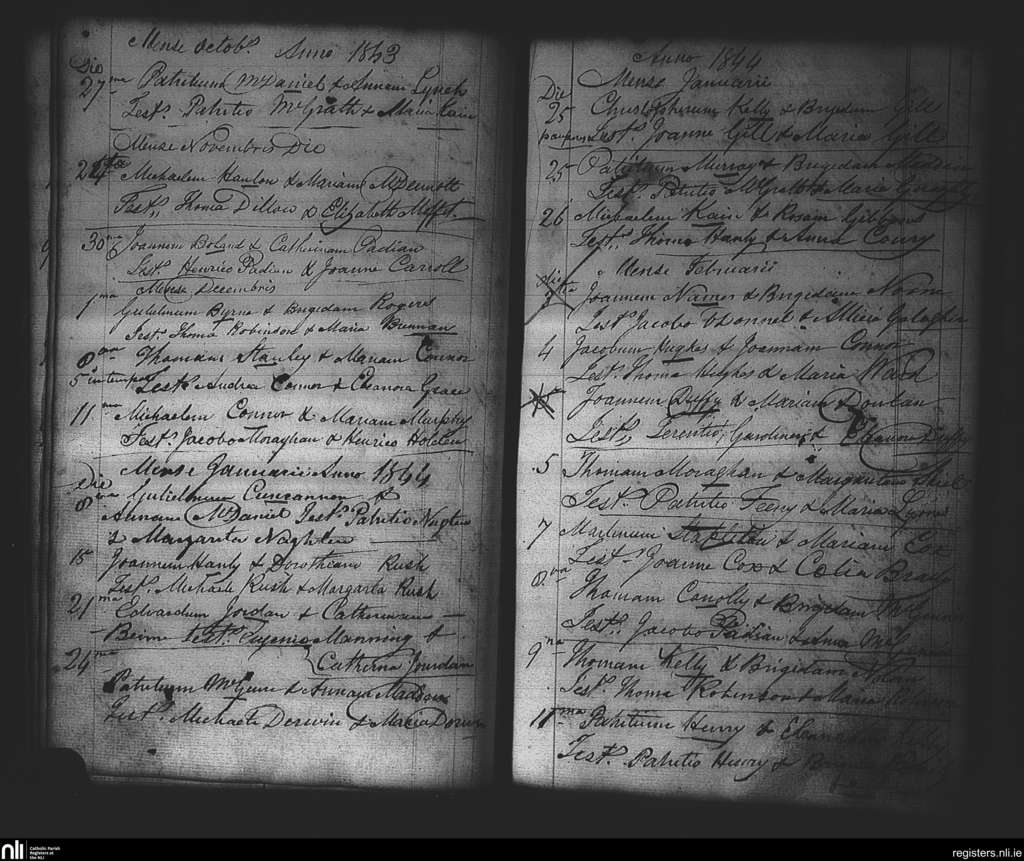 Mense Octobs. Anno 1843
Die
27ma Patritium McDaniel & Annam Lynch
Tests. Patritio McGrath & Maria Kain
Mense Novembris Die
Michaelem Hanlon & Mariam McDermott
Tests. Thoma Dillon & Elizabeth Moffit
30ma Joannem Boland & Catherinam Padian
Tests. Henrico Padian & Joanne Carroll
Mense Decembris
1ma Gulielmum Byrne & Brigidam Rogers
Tests. Thoma Robinson & Maria Brennan
8va Thomam Stanley & Mariam Connor
Tests. Andrea Connor & Eleanora Grace
11ma Michaelem Connor & Mariam Murphy
Tests. Jacobo Moraghan & Henrico Holden
Mense Januarii Anno 1844
Die
8va Gulielmum Cuncannon &
Annam McDaniel Tests. Patritio Naghten
& Margarita Naghten
15 Joannem Hanly & Dorotheam Rush
Tests. Michaele Rush & Margarita Rush
21ma Edwardum Jordan & Catherinam
Beirne Tests. Eugenio Manning &
Catherina Jourdan
24ma
Patritium McGuire & Annam Madden
Tests. Michaele Derwin & Maria Derwin
Anno 1844
Mense Januarii
Die
25 Christopherum Kelly & Brigidam Gill
Tests. Joanne Gill & Maria Gill
25 Patritium Murray & Brigidam
Tests. Patritio McGrath & Maria Geraghty
26 Michaelem Kain & Rosam Gibbons
Tests. Thoma Hanly & Anna Coury
Mense Februarii
die
3 Joannem Naines & Brigidam Noone
Tests. Jacobo O'Donnel & Alicia Galagher
4 Jacobum Hughes & Joannam Connor
Tests. Thoma Hughes & Maria Ward
Joannem Duffy & Mariam Donlan
Tests. Terentio Gardiner & Eleanora Duffy
5 Thomam Moraghan & Margaritam Shiel
Tests. Patritio Feeny & Maria Lyons
7 Martinum Stapleton & Mariam Cox
Tests. Joanne Cox & Celia Brady
8va
Thomam Conolly & Brigidam
Tests. Jacobo Padian & Anna
9na Thomam Kelly & Brigidam Nolan
Tests. Thoma Robinson & Maria Robinson
11ma Patritium Henry & Kelly
Tests. Patritio Henry &
nli Catholic Parish
Registers at
the NLI
registers.nli.ie